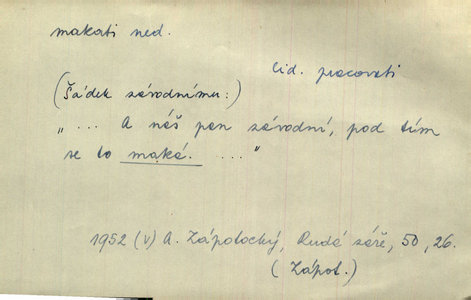 makati ned.
lid. pracovati
(Šádek závodnímu:)
„ ... A náš pan závodní, pod tím
se to maká. ..."
1952 (V) A. Zápotocký, Rudá záře, 50, 26.
(Zápot.)